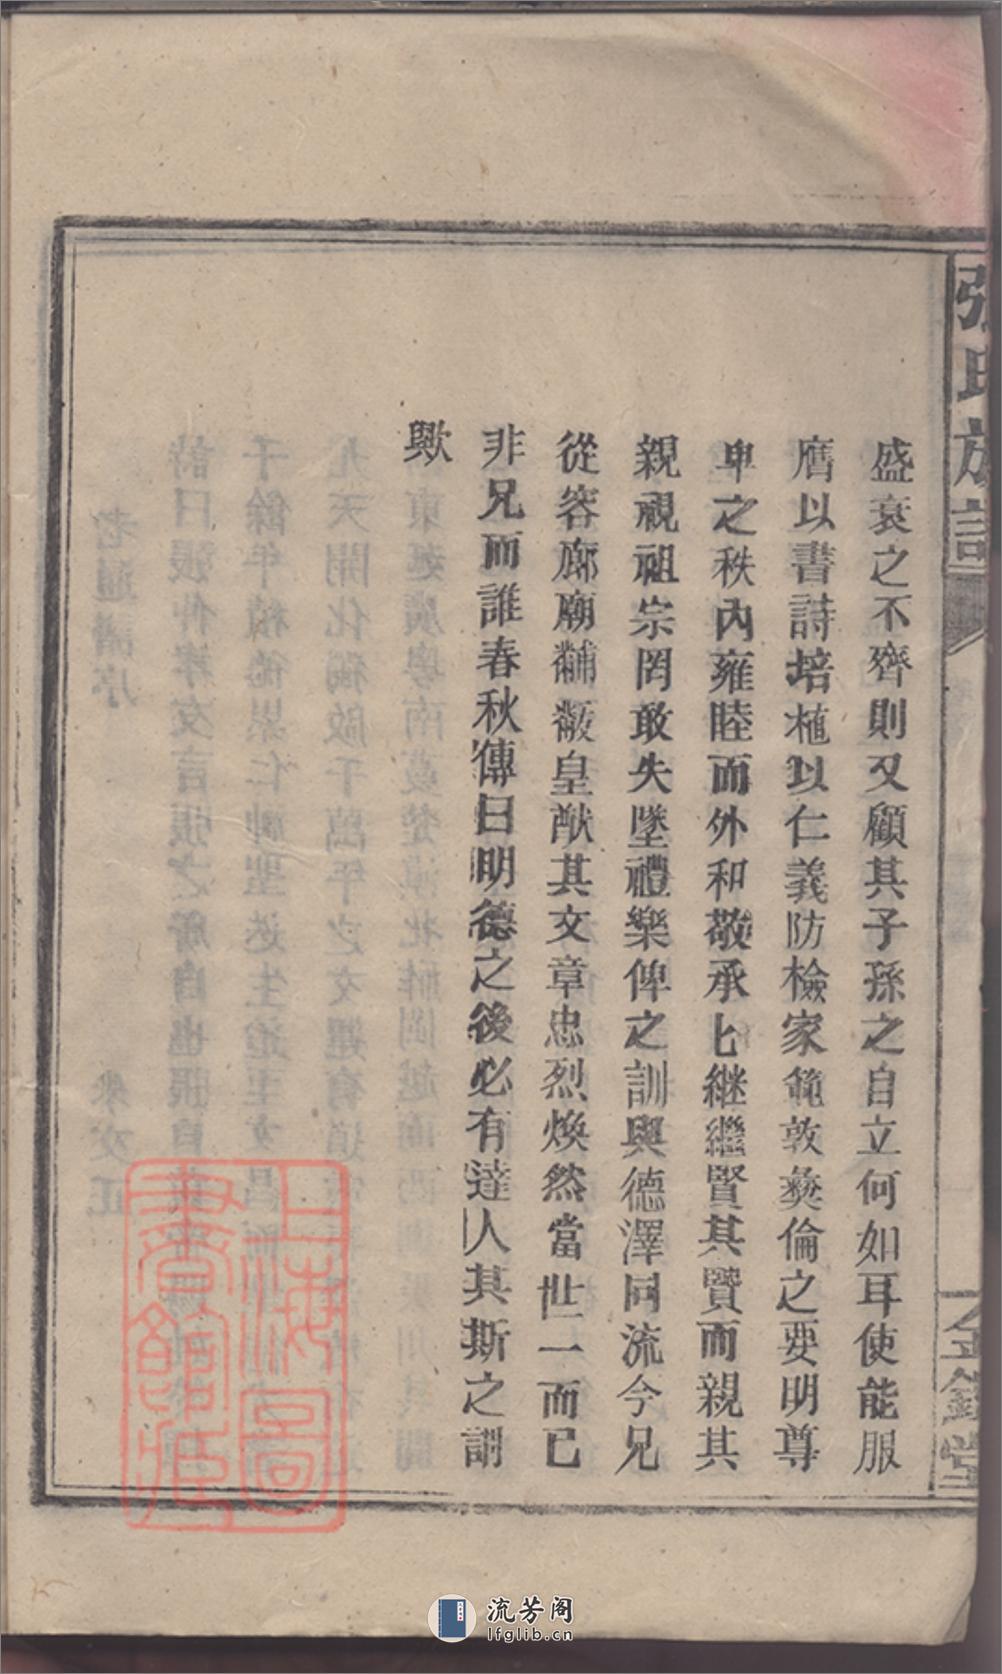 張氏族譜
金鑑堂
盛衰之不齊則又顧其子孫之自立何如耳使能服
膺以書詩培植以仁義防檢家範敦彜倫之要明尊
卑之秩內雍睦而外和敬承匕継繼賢其賢而親其
親視祖宗罔敢失墜禮樂俾之訓與德澤同流今兄
從容廊廟黼黻皇猷其文章忠烈煥然當世一而已
非兄而誰春秋傳曰明德之後必有達人其斯之謂
歟
上海圖
書館藏
流芳阁
lfglib.cn